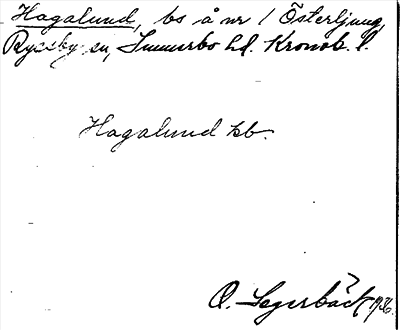 Hagalund, bs å nr 1 Österljung,
Ryssby sn, Sunnerbo hd. Kronob. l.
Hagalund hb.
O. Segerbäck 1936.